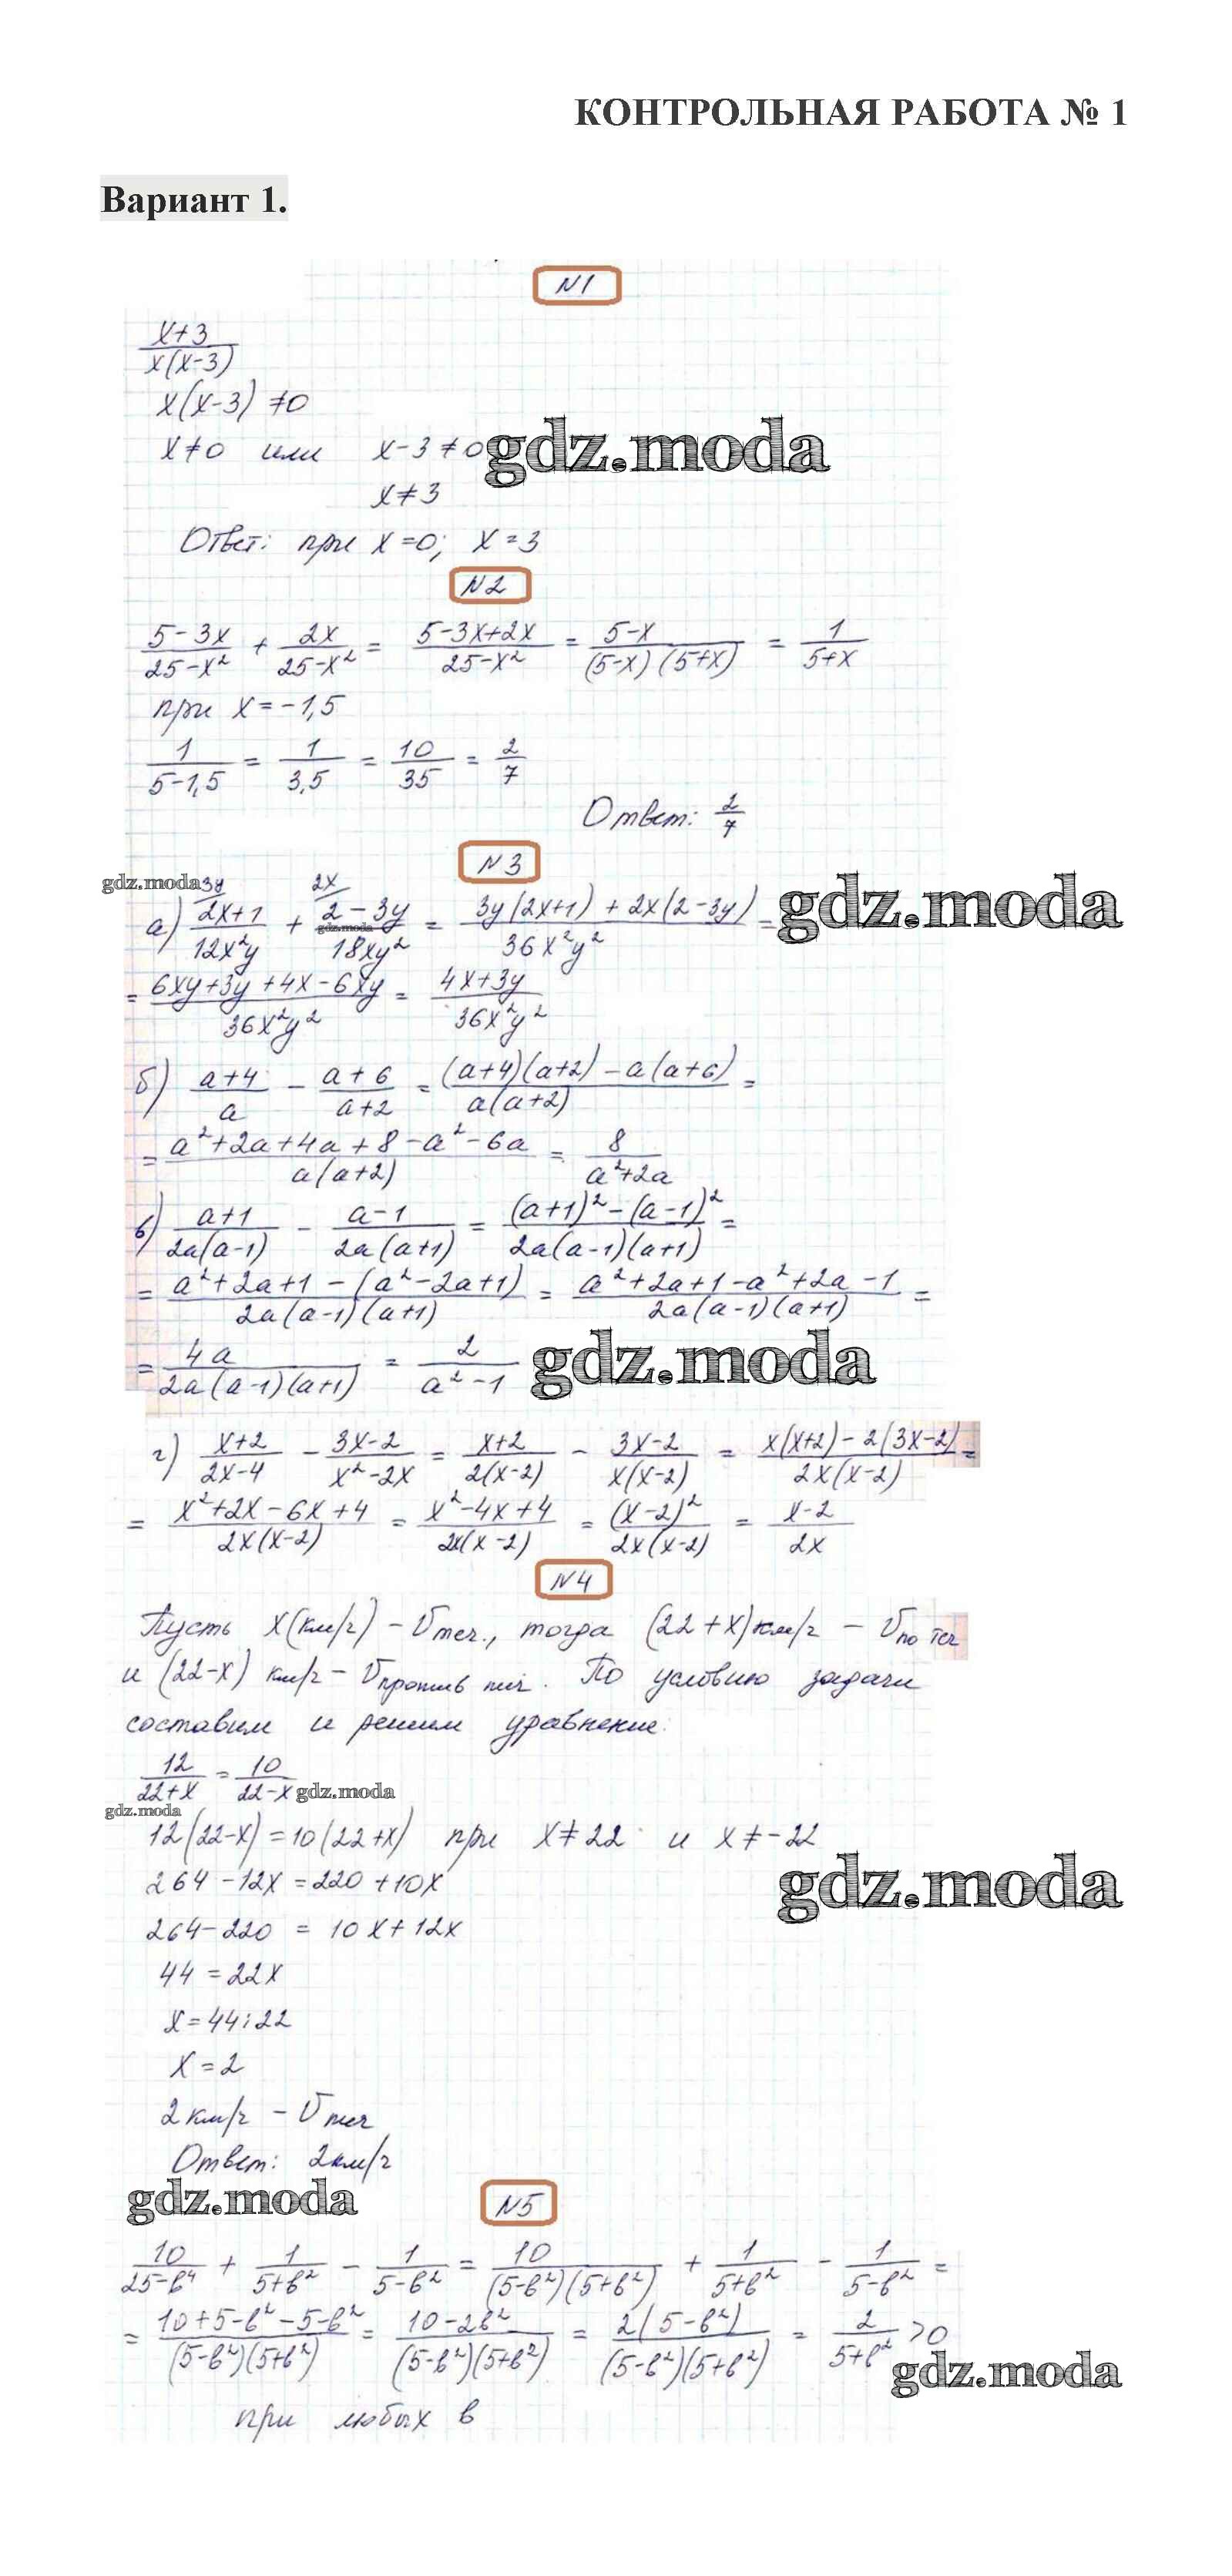 КОНТРОЛЬНАЯ РАБОТА № 1
Вариант 1.
N1
x+3
x(x-3)
x(x-3) ≠0
x≠0 или x-3≠0 gdz.moda
x≠3
Ответ: при x=0; x=3
N2
(5-3x)/(25-x²) + (2x)/(25-x²) = (5-3x+2x)/(25-x²) = (5-x)/((5-x)(5+x)) = 1/(5+x)
при x=-1,5
1/(5-1,5) = 1/3,5 = 10/35 = 2/7
Ответ: 2/7
N3
gdz.moda 3y 2x
а) (2x+1)/(12x²y) + (2-3y)/(18xy²) = (3y(2x+1)+2x(2-3y))/(36x²y²) = gdz.moda
gdz.moda
= (6xy+3y+4x-6xy)/(36x²y²) = (4x+3y)/(36x²y²)
б) (a+4)/a - (a+6)/(a+2) = ((a+4)(a+2)-a(a+6))/(a(a+2)) =
= (a²+2a+4a+8-a²-6a)/(a(a+2)) = 8/(a²+2a)
в) (a+1)/(2a(a-1)) - (a-1)/(2a(a+1)) = ((a+1)²-(a-1)²)/(2a(a-1)(a+1)) =
= (a²+2a+1-(a²-2a+1))/(2a(a-1)(a+1)) = (a²+2a+1-a²+2a-1)/(2a(a-1)(a+1)) =
= 4a/(2a(a-1)(a+1)) = 2/(a²-1) gdz.moda
г) (x+2)/(2x-4) - (3x-2)/(x²-2x) = (x+2)/(2(x-2)) - (3x-2)/(x(x-2)) = (x(x+2)-2(3x-2))/(2x(x-2)) =
= (x²+2x-6x+4)/(2x(x-2)) = (x²-4x+4)/(2x(x-2)) = (x-2)²/(2x(x-2)) = (x-2)/(2x)
N4
Пусть x(км/ч) - Vтеч., тогда (22+x)км/ч - Vпо теч
и (22-x) км/ч - Vпротив теч. По условию задачи
составим и решим уравнение:
12/(22+x) = 10/(22-x) gdz.moda
gdz.moda
12(22-x)=10(22+x) при x≠22 и x≠-22
264-12x=220+10x gdz.moda
264-220 = 10x+12x
44=22x
x=44:22
x=2
2км/ч - Vтеч
Ответ: 2км/ч
gdz.moda N5
10/(25-b⁴) + 1/(5+b²) - 1/(5-b²) = 10/((5-b²)(5+b²)) + 1/(5+b²) - 1/(5-b²) =
= (10+5-b²-5-b²)/((5-b²)(5+b²)) = (10-2b²)/((5-b²)(5+b²)) = 2(5-b²)/((5-b²)(5+b²)) = 2/(5+b²) >0
gdz.moda
при любых b